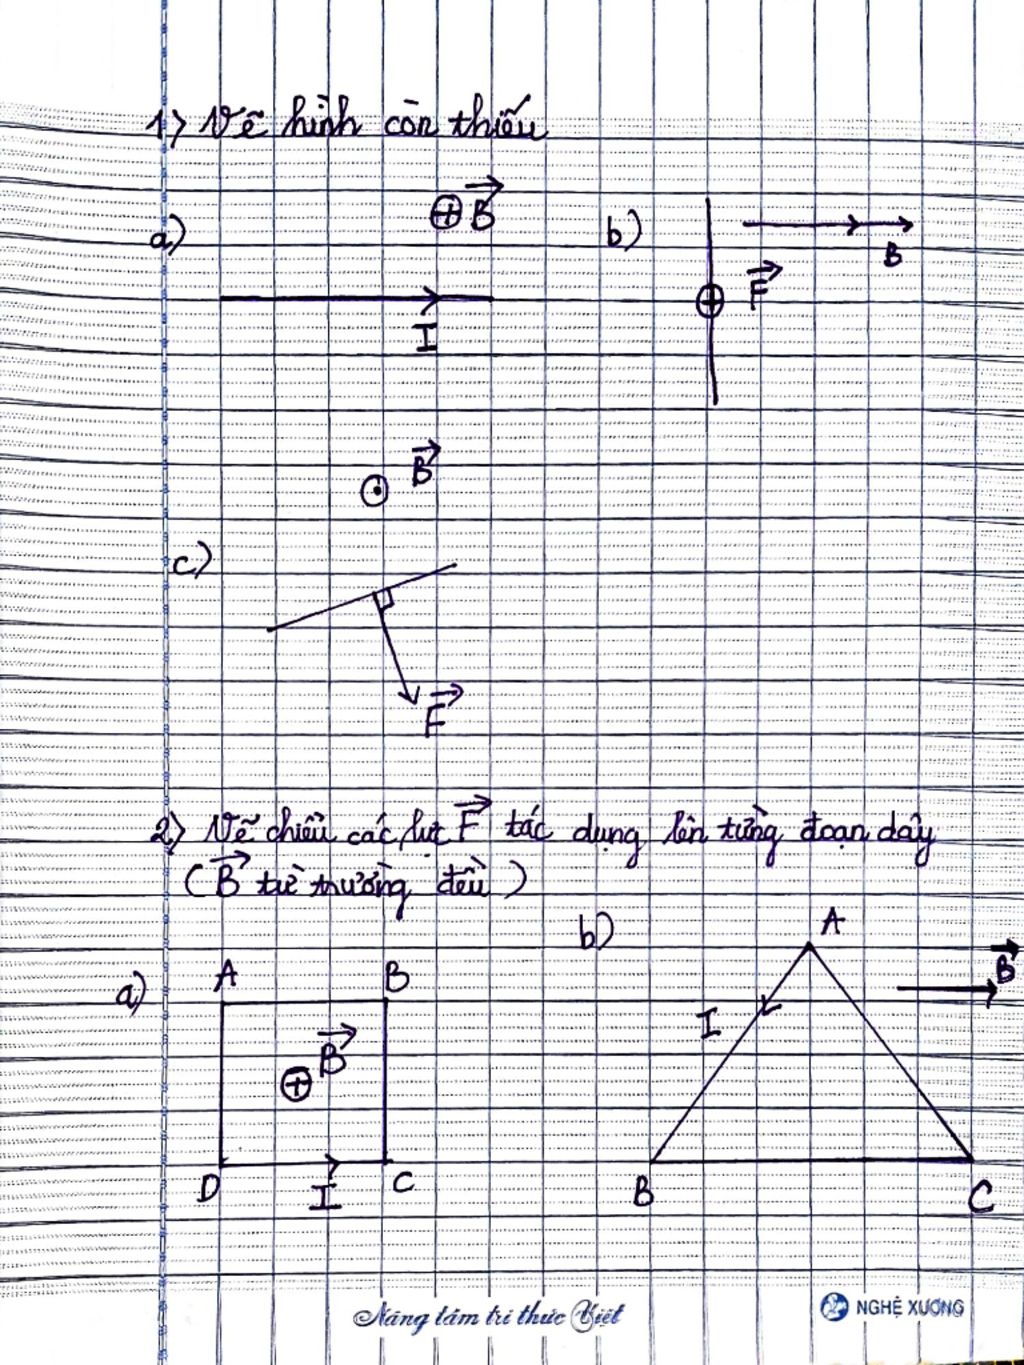 1) Vẽ hình còn thiếu
a) ⊕ B→ b) B
F→
I
B→
c)
F→
2) Vẽ chiều các lực F→ tác dụng lên từng đoạn dây
(B→ từ trường đều)
b) A
a) A B B→
I
B→
D I C B C
Nâng tầm tri thức Việt NGHỆ XƯƠNG